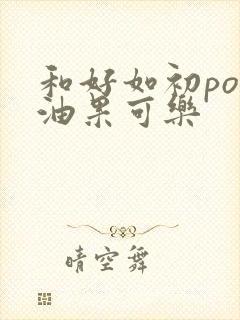 和好如初po
油果可樂
晴空舞